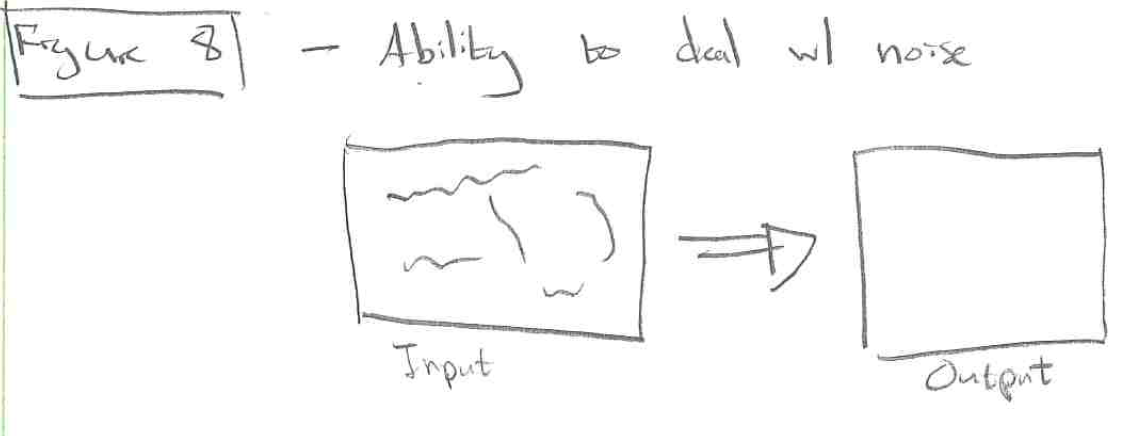 Figure 8 - Ability to deal w/ noise
Input
Output